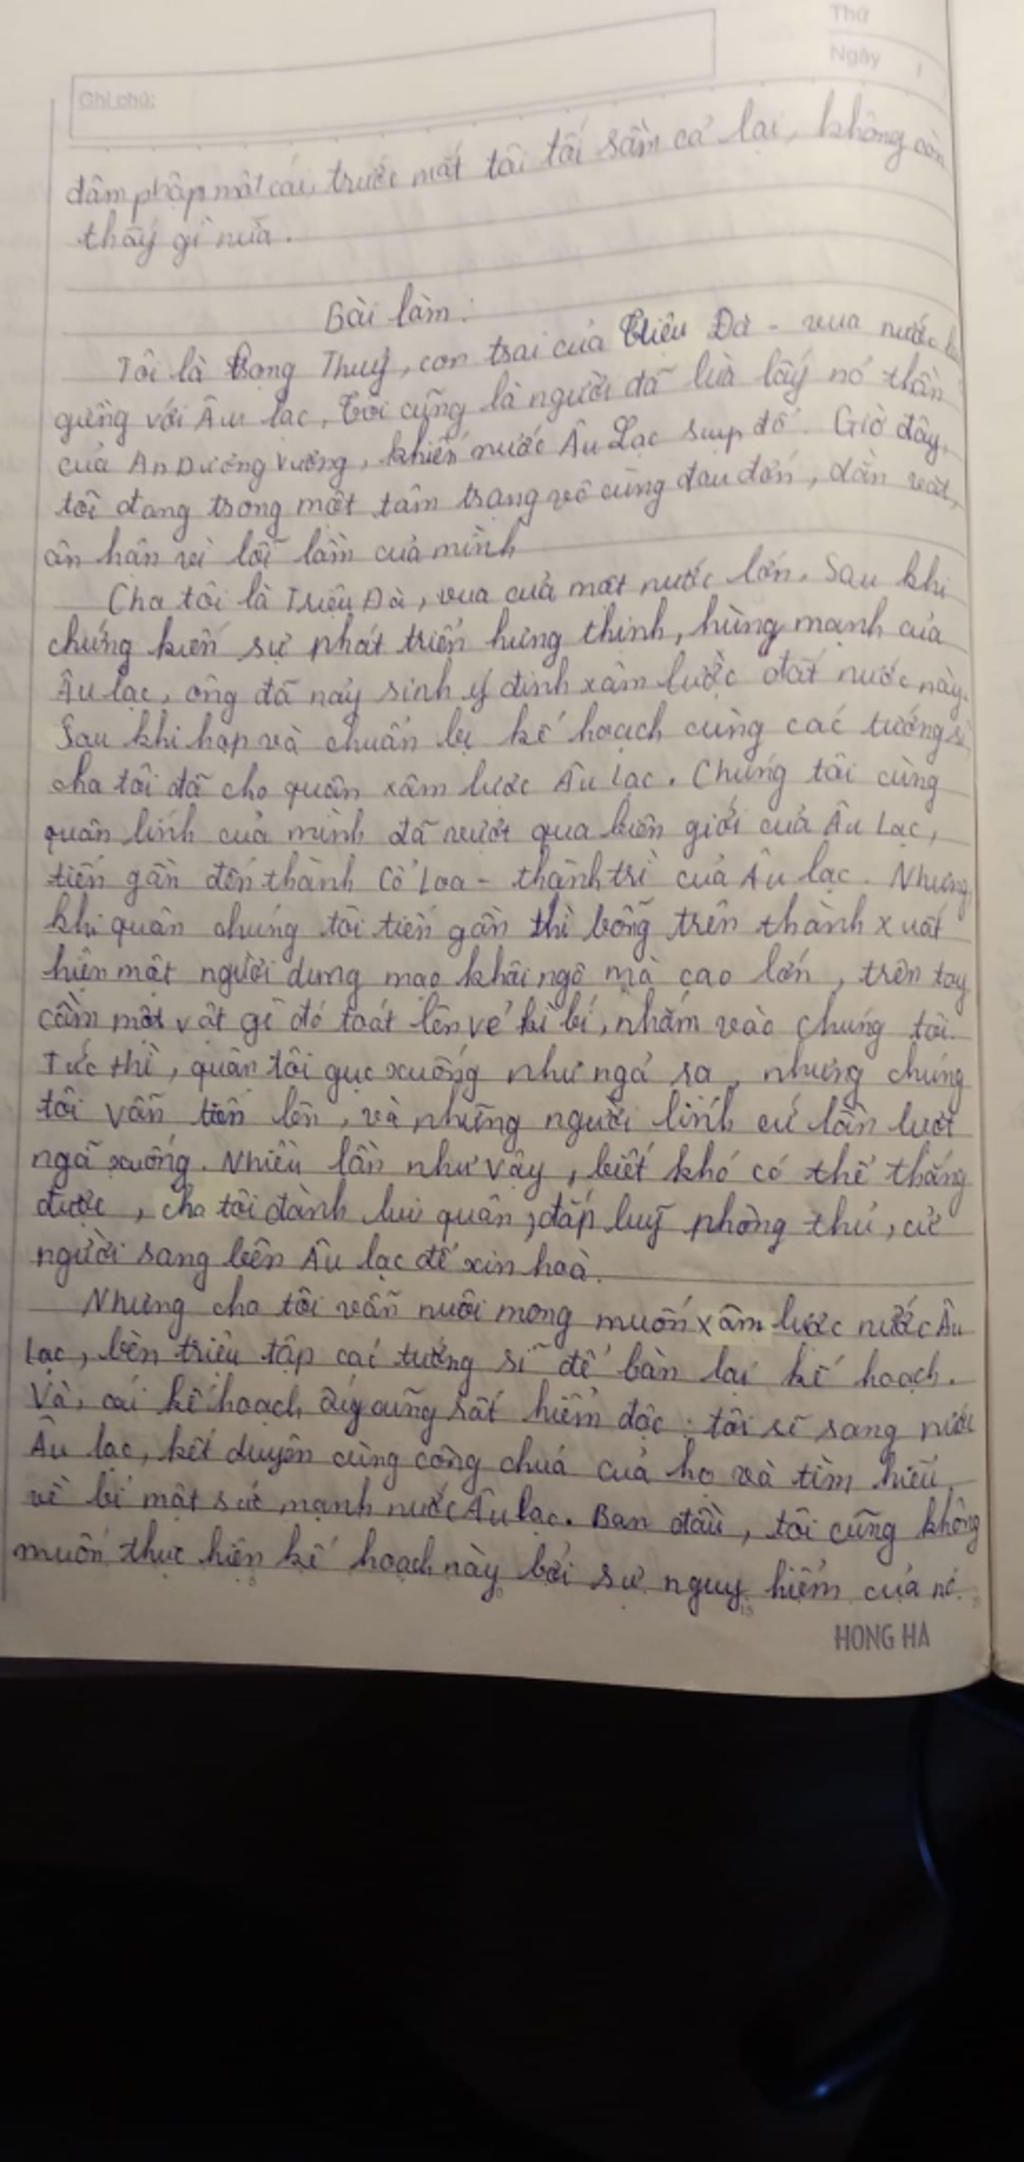 Thứ
Ngày
Ghi chú:
đâm phập một cái, trước mắt tôi tối sầm cả lại, không còn
thấy gì nữa.
Bài làm:
Tôi là Trọng Thuỷ, con trai của Triệu Đà - vua nước
giềng với Âu Lạc. Tôi cũng là người đã lừa lấy nỏ thần
của An Dương Vương, khiến nước Âu Lạc sụp đổ. Giờ đây,
tôi đang trong một tâm trạng vô cùng đau đớn, dằn vặt,
ân hận vì lỗi lầm của mình
Cha tôi là Triệu Đà, vua của một nước lớn. Sau khi
chứng kiến sự phát triển hưng thịnh, hùng mạnh của
Âu Lạc, ông đã nảy sinh ý định xâm lược đất nước này.
Sau khi họp và chuẩn bị kế hoạch cùng các tướng sĩ,
cha tôi đã cho quân xâm lược Âu Lạc. Chúng tôi cùng
quân lính của mình đã vượt qua biên giới của Âu Lạc,
tiến gần đến thành Cổ Loa - thành trì của Âu Lạc. Nhưng
khi quân chúng tôi tiến gần thì bỗng trên thành xuất
hiện một người dung mạo khôi ngô mà cao lớn, trên tay
cầm một vật gì đó toát lên vẻ kì bí, nhắm vào chúng tôi.
Tức thì, quân tôi gục xuống như ngả rạ, nhưng chúng
tôi vẫn tiến lên, và những người lính cứ lần lượt
ngã xuống. Nhiều lần như vậy, biết khó có thể thắng
được, cha tôi đành lui quân, đắp luỹ phòng thủ, cử
người sang bên Âu Lạc để xin hoà.
Nhưng cha tôi vẫn nuôi mong muốn xâm lược nước Âu
Lạc, bèn triệu tập các tướng sĩ để bàn lại kế hoạch.
Và, cái kế hoạch ấy cũng rất hiểm độc: tôi sẽ sang nước
Âu Lạc, kết duyên cùng công chúa của họ và tìm hiểu
về bí mật sức mạnh nước Âu Lạc. Ban đầu, tôi cũng không
muốn thực hiện kế hoạch này bởi sự nguy hiểm của nó.
HONG HA